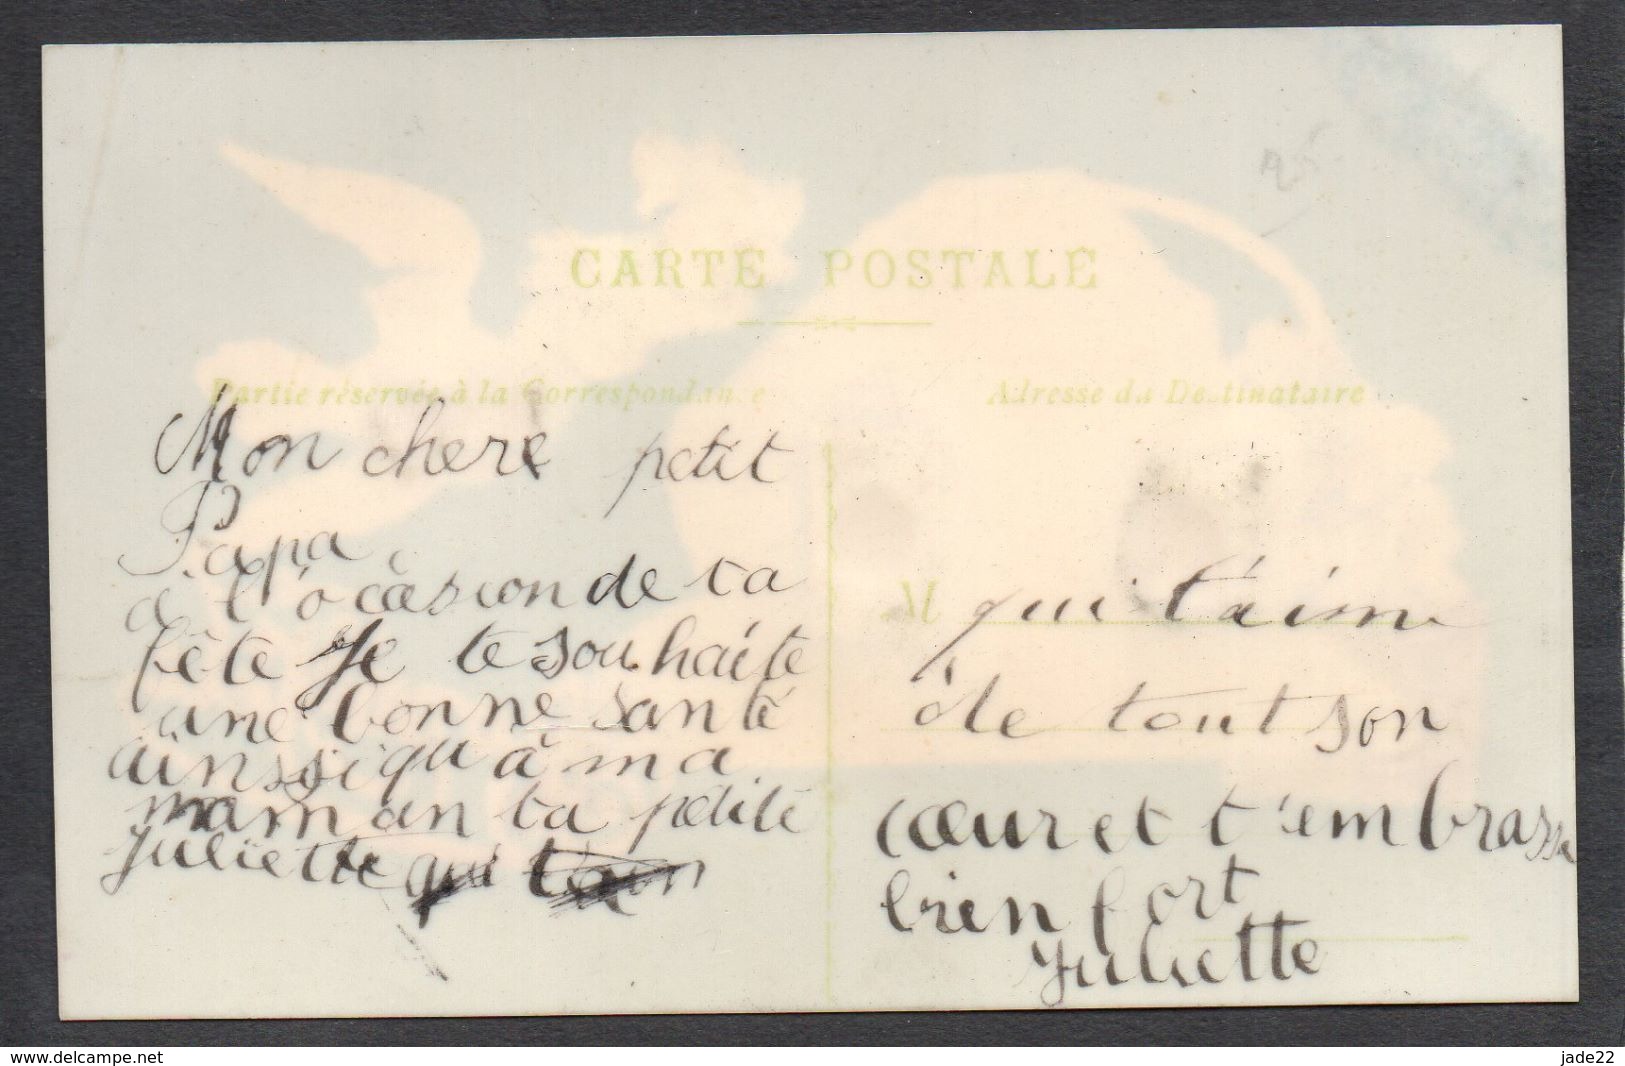 CARTE POSTALE
Partie réservée à la Correspondance
Mon chere petit
Papa
a l'ocasion de ta
fête Je te souhaite
une bonne santé
ainssi qu'à ma
maman ta petite
Juliette qui
Adresse du Destinataire
M qui t'aime
de tout son
cœur et t'embrasse
bien fort
Juliette
www.delcampe.net
jade22